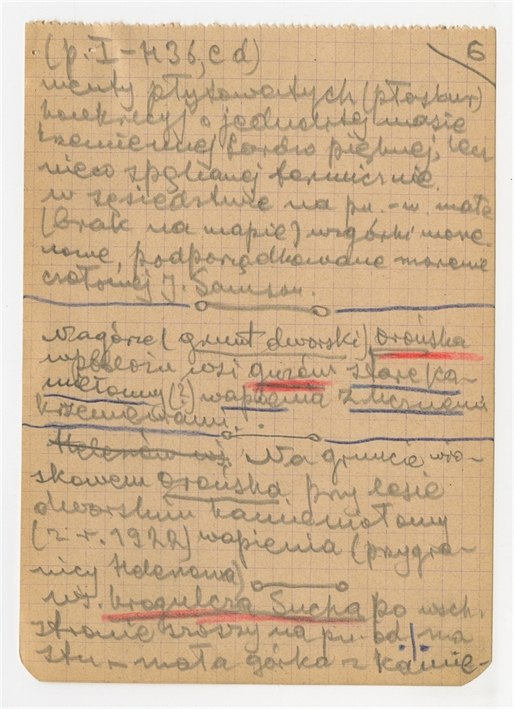 6
(p. I-H36, c d)
menty płytowatych (płaskur)
konkrecyj o jednolitej masie
krzemiennej bardzo pięknej, lecz
nieco spękanej termicznie.
w sąsiedztwie na pn.-w. małe
(brak na mapie) wzgórki more-
nowe, podporządkowane morenie
czołowej J. Samson.
Nagórze (grunt dworski) Orońska
wpobliżu wsi Guzów stare ka-
miełomy (?) wapienia z licznemi
krzemieniami.
Helenów wś. Na gruncie wło-
skowem Orońska przy lesie
dworskim kamieniołomy
(z r. 1922) wapienia (przy gra-
nicy Helenowa)
wś. Krogulcza Sucha po wsch.
stronie szosy na pn. od ma
stu - mała górka z kamie-